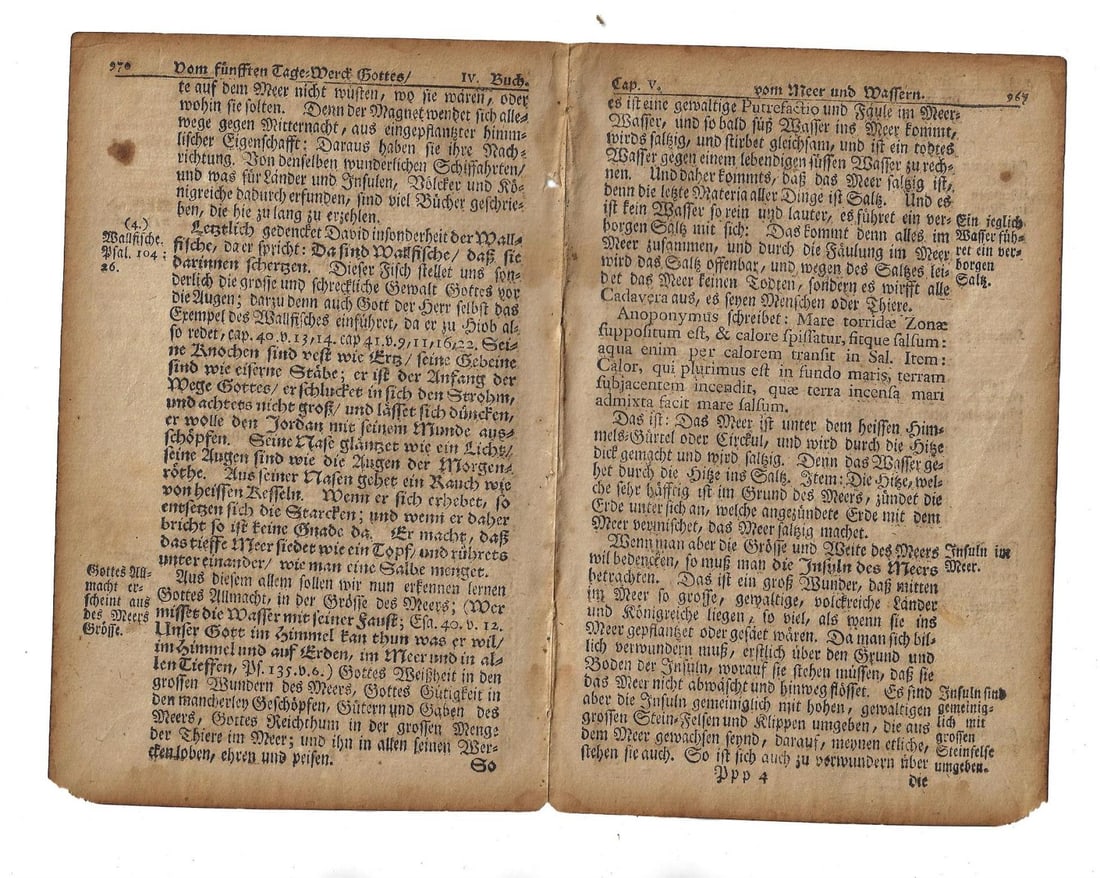 970 Vom fünfften Tage-Werck Gottes/ IV. Buch.
te auf dem Meer nicht wüsten, wo sie wären, oder
wohin sie solten. Denn der Magnet wendet sich alle-
wege gegen Mitternacht, aus eingepflantzter himm-
lischer Eigenschafft: Daraus haben sie ihre Nach-
richtung. Von denselben wunderlichen Schiffahrten/
und was für Länder und Insulen, Völcker und Kö-
nigreiche dadurch erfunden, sind viel Bücher geschrie-
ben, die hie zu lang zu erzehlen.
(4.)
Wallfische.
Psal. 104:
26.
Letzlich gedencket David insonderheit der Wall-
fische, da er spricht: Da sind Wallfische/ daß sie
darinnen schertzen. Dieser Fisch stellet uns son-
derlich die grosse und schreckliche Gewalt Gottes vor
die Augen; darzu denn auch Gott der Herr selbst das
Exempel des Wallfisches einführet, da er zu Hiob al-
so redet, cap. 40. v. 13, 14. cap 41. v. 9, 11, 16, 22. Sei-
ne Knochen sind vest wie Ertz/ seine Gebeine
sind wie eiserne Stäbe; er ist der Anfang der
Wege Gottes/ er schlucket in sich den Strohm,
und achtets nicht groß/ und lässet sich düncken,
er wolle den Jordan mit seinem Munde aus-
schöpfen. Seine Nase gläntzet wie ein Licht/
seine Augen sind wie die Augen der Morgen-
röthe. Aus seiner Nasen gehet ein Rauch wie
von heissen Kesseln. Wenn er sich erhebet, so
entsetzen sich die Starcken; und wenn er daher
bricht so ist keine Gnade da. Er macht, daß
das tieffe Meer siedet wie ein Topf/ und rührets
unter einander/ wie man eine Salbe menget.
Gottes All-
macht er-
scheint aus
des Meers
Grösse.
Aus diesem allem sollen wir nun erkennen lernen
Gottes Allmacht, in der Grösse des Meers; (Wer
misset die Wasser mit seiner Faust; Esa. 40. v. 12.
Unser Gott im Himmel kan thun was er wil/
im Himmel und auf Erden, im Meer und in al-
len Tieffen, Ps. 135. v. 6.) Gottes Weißheit in den
grossen Wundern des Meers, Gottes Gütigkeit in
den mancherley Geschöpfen, Gütern und Gaben des
Meers, Gottes Reichthum in der grossen Menge
der Thiere im Meer; und ihn in allen seinen Wer-
cken loben, ehren und peisen.
So
Cap. V. vom Meer und Wassern. 967
es ist eine gewaltige Putrefactio und Fäule im Meer-
Wasser, und so bald süß Wasser ins Meer kommt,
wirds saltzig, und stirbet gleichsam, und ist ein todtes
Wasser gegen einem lebendigen süssen Wasser zu rech-
nen. Und daher kommts, daß das Meer saltzig ist,
denn die letzte Materia aller Dinge ist Saltz. Und es
ist kein Wasser so rein und lauter, es führet ein ver-
borgen Saltz mit sich: Das kommt denn alles im
Meer zusammen, und durch die Fäulung im Meer
wird das Saltz offenbar, und wegen des Saltzes lei-
det das Meer keinen Todten, sondern es wirfft alle
Cadavera aus, es seyen Menschen oder Thiere.
Ein jeglich
Wasser füh-
ret ein ver-
borgen
Saltz.
Anoponymus schreibet: Mare torridæ Zonæ
suppositum est, & calore spissatur, fitque salsum:
aqua enim per calorem transit in Sal. Item:
Calor, qui plurimus est in fundo maris, terram
subjacentem incendit, quæ terra incensa mari
admixta facit mare salsum.
Das ist: Das Meer ist unter dem heissen Him-
mels-Gürtel oder Circkul, und wird durch die Hitze
dick gemacht und wird saltzig. Denn das Wasser ge-
het durch die Hitze ins Saltz. Item: Die Hitze, wel-
che sehr häffig ist im Grund des Meers, zündet die
Erde unter sich an, welche angezündete Erde mit dem
Meer vermischet, das Meer saltzig machet.
Wenn man aber die Grösse und Weite des Meers
wil bedencken, so muß man die Insuln des Meers
betrachten. Das ist ein groß Wunder, daß mitten
im Meer so grosse, gewaltige, volckreiche Länder
und Königreiche liegen, so viel, als wenn sie ins
Meer gepflantzet oder gesäet wären. Da man sich bil-
lich verwundern muß, erstlich über den Grund und
Boden der Insuln, worauf sie stehen müssen, daß sie
das Meer nicht abwäscht und hinweg flösset. Es sind
aber die Insuln gemeiniglich mit hohen, gewaltigen
grossen Stein-Felsen und Klippen umgeben, die aus
dem Meer gewachsen seynd, darauf, meynen etliche,
stehen sie auch. So ist sich auch zu verwundern über
Insuln im
Meer.
Insuln sind
gemeinig-
lich mit
grossen
Steinfelse
umgeben.
Ppp 4 die